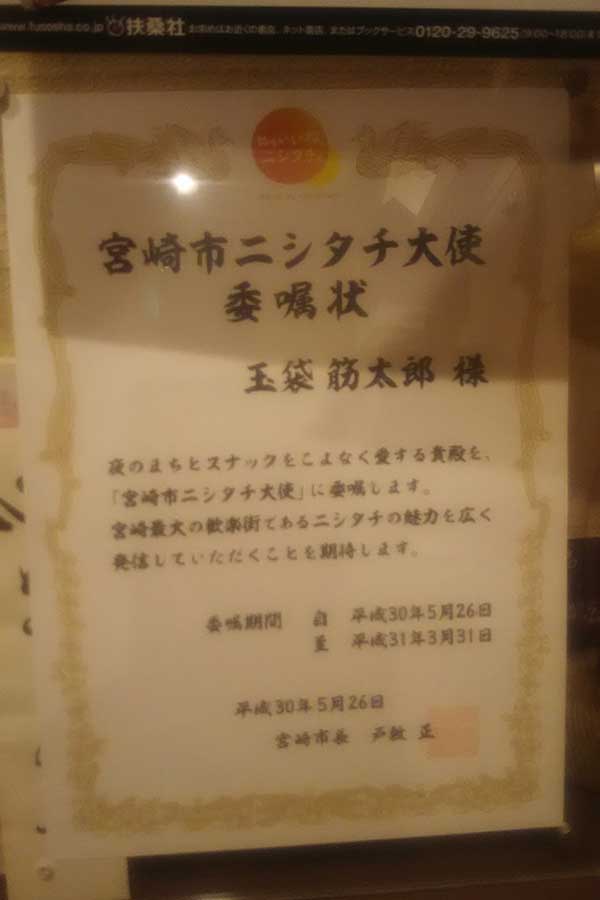 www.fusosha.co.jp 扶桑社 お求めはお近くの書店、ネット書店、またはブックサービス 0120-29-9625 (9:00~18:00)
ニシタチ
宮崎市ニシタチ大使
委嘱状
玉袋 筋太郎 様
夜のまちとスナックをこよなく愛する貴殿を、
「宮崎市ニシタチ大使」に委嘱します。
宮崎最大の歓楽街であるニシタチの魅力を広く
発信していただくことを期待します。
委嘱期間 自 平成30年5月26日
至 平成31年3月31日
平成30年5月26日
宮崎市長 戸敷 正